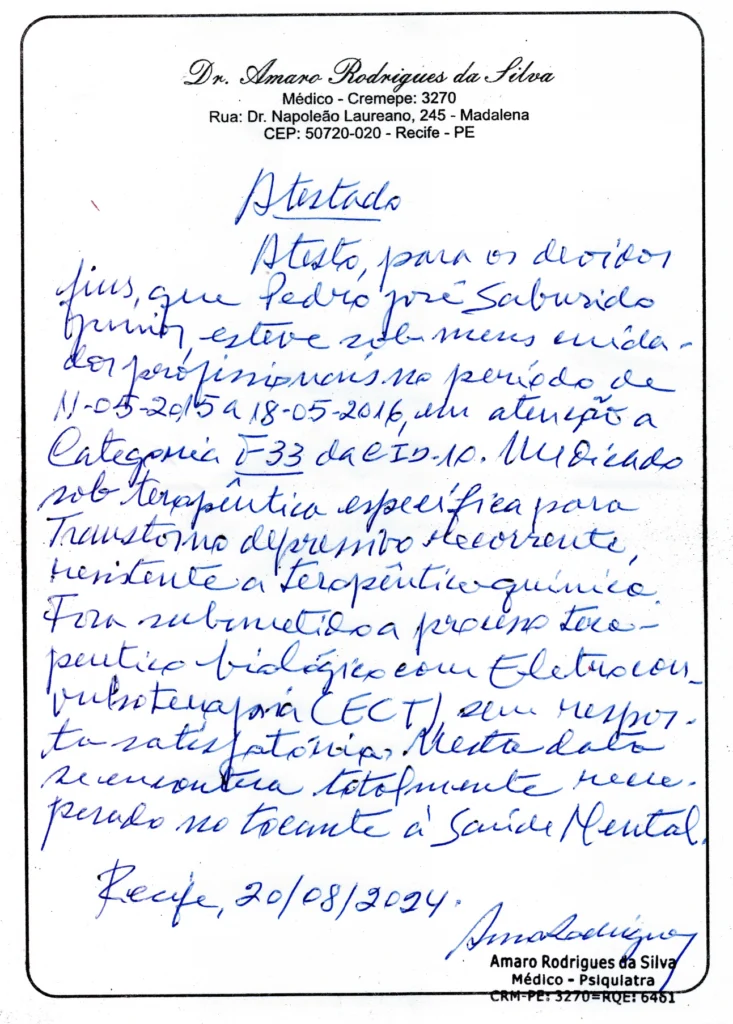 Dr. Amaro Rodrigues da Silva
Médico - Cremepe: 3270
Rua: Dr. Napoleão Laureano, 245 - Madalena
CEP: 50720-020 - Recife - PE
Atestado
Atesto, para os devidos
fins, que Pedro José Saburido
Junior, esteve sob meus cuida-
dos profissionais no período de
11-05-2015 a 18-05-2016, em atenção a
Categoria F-33 da CID-10. Medicado
sob terapêutica específica para
Transtorno depressivo recorrente,
resistente a terapêutica química.
Fora submetido a processo tera-
pêutico biológico com Eletrocon-
vulsoterapia (ECT), sem respos-
ta satisfatória. Nesta data
se encontra totalmente recu-
perado no tocante à Saúde Mental.
Recife, 20/08/2024.
Amaro Rodrigues
Amaro Rodrigues da Silva
Médico - Psiquiatra
CRM-PE: 3270=RQE: 6461